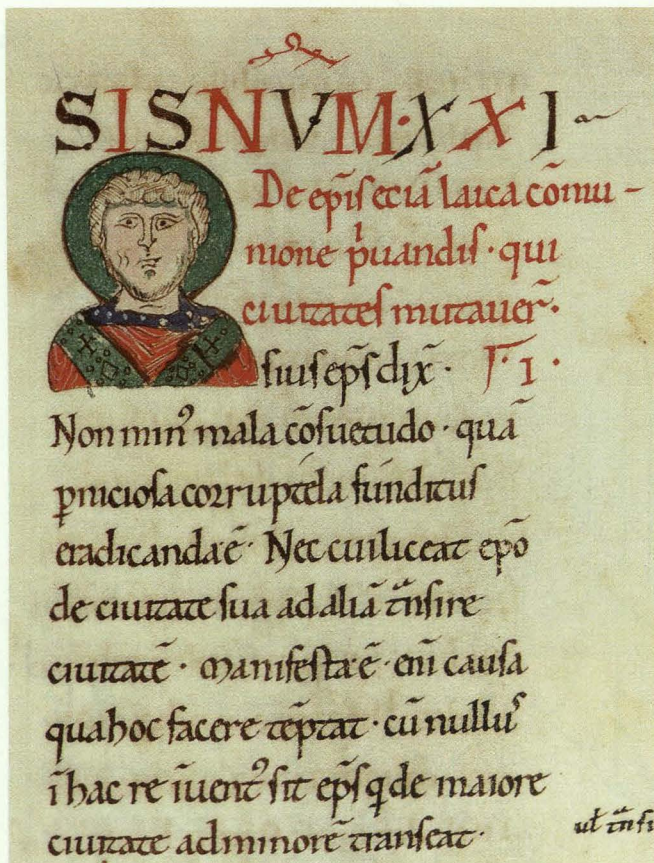 SISNṼM·XXI
De ep̃iſ eciã laica cõmu-
nione pͥuandiſ · qui
ciuitateſ mutauer̃·
ſiuſ ep̃ſ dix̃ · I ·
Non min᷒ mala cõſuetudo · quã
ꝑnicioſa corruptela funditus
eradicanda ẽ · Nec cui liceat ep̃o
de ciuitate ſua ad aliã tᷓnſire
ciuitatẽ · Manifeſta ẽ · eni̅ cauſa
qua hoc facere tẽptat · cũ nullus
ĩ hac re ĩuent᷒ ſit ep̃ſ q̇ de maiore
ciuitate ad minorẽ tranſeat ·
uł tᷓnſi